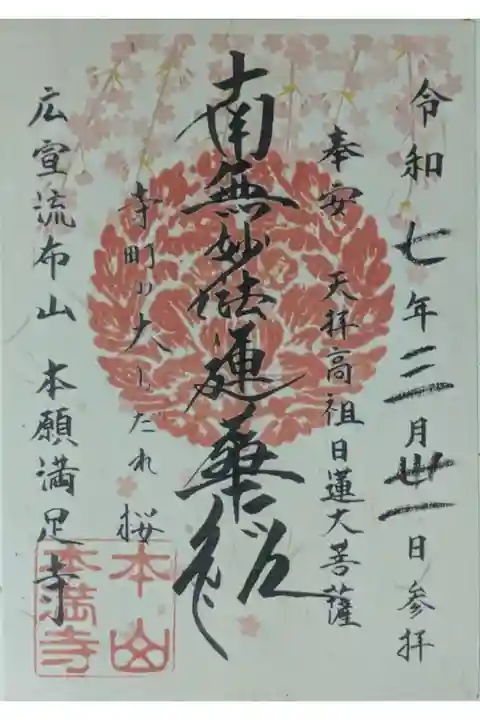 令和七年三月卅一日参拝
奉安 天拝高祖日蓮大菩薩
南無妙法蓮華経
寺町の大しだれ桜
広宣流布山 本願満足寺
本山
本満寺